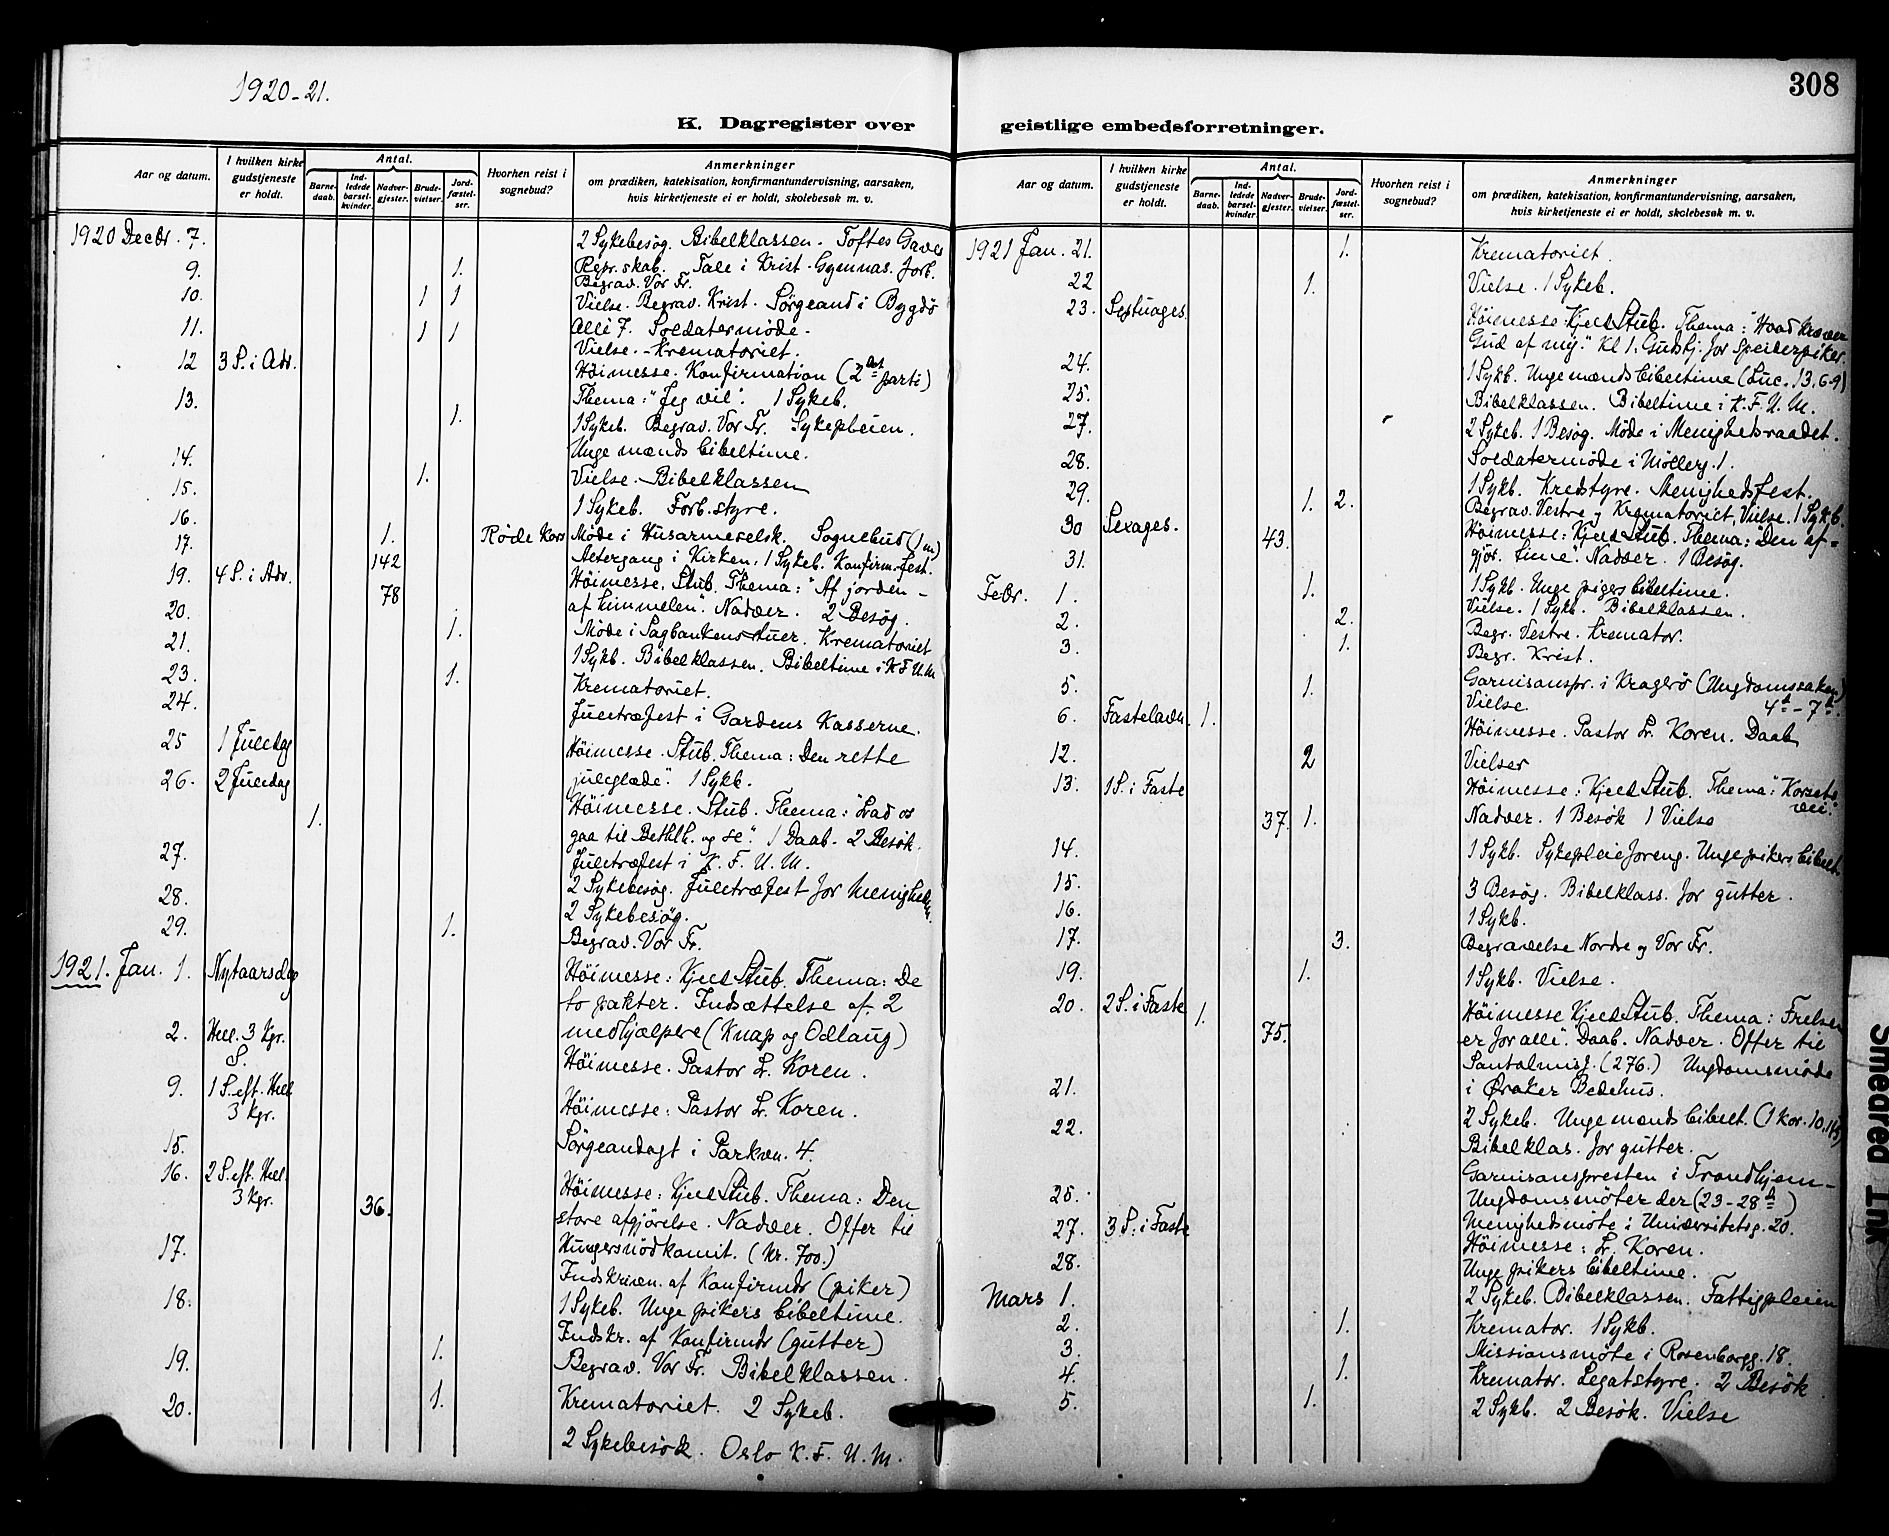 1920-21.
308
K. Dagregister over geistlige embedsforretninger.
Aar og datum.
I hvilken kirke gudstjeneste er holdt.
Antal.
Barne-daab.
Ind-ledede barsel-kvinder.
Nadver-gjester.
Brude-vielser.
Jord-fæstel-ser.
Hvorhen reist i sognebud?
Anmerkninger
om prædiken, katekisation, konfirmantundervisning, aarsaken,
hvis kirketjeneste ei er holdt, skolebesøk m. v.
1920 Decbr. 7. 2 Sykebesøg. Bibelklassen. Toftes Gave
Repr.skab. Tale i Krist. Gymnas. forb.
9. 1. Begrav. Vor Fr.
10. 1 1 Vielse. Begrav. Krist. Sørgeand i Bygdø
Allé 7. Soldatermøde.
11. 1 1 Vielse. Krematoriet.
12 3 S. i Adv. Höimesse. Konfirmation (2det parti)
Thema: "Jeg vil". 1 Sykeb.
13. 1. 1 Sykeb. Begrav. Vor Fr. Sykepleien.
Unge mænds bibeltime.
14. 1. Vielse. Bibelklassen
15. 1 Sykeb. Forb. styre.
16. 1. Røde Kors Møde i Husarmeselsk. Sognebud (1 m)
17. 142 Altergang i Kirken. 1 Sykeb. Konfirm. fest.
19. 4 S. i Adv. 78 Höimesse. Stub. Thema: "Af jorden -
af himmelen". Nadver. 2 Besøg.
20. Møde i Sagbankens stuer. Krematoriet
21. 1. 1 Sykb. Bibelklassen. Bibeltime i K.F.U.M
23. 1. Krematoriet.
24. Juletræfest i Gardens Kasserne.
25 1 Juledag Höimesse. Stub. Thema: Den rette
juleglæde". 1 Sykb.
26. 2 Juledag 1. Höimesse. Stub. Thema: "Lad os
gaa til Bethlh. og se". 1 Daab. 2 Besøk.
27. Juletræfest i K. F. U. M.
2 Sykebesøg. Juletræfest for Menigheden.
28. 2 Sykebesøg.
29. 1. Begrav. Vor Fr.
1921. Jan. 1. Nytaarsdag Höimesse: Kjeld Stub. Thema: De
to pakter. Indsættelse af 2
medhjælpere (Knap og Odlaug)
2. Hell. 3 Kgr. S. Höimesse. Pastor Lr. Koren.
9. 1 S. eft. Hell 3 Kgr. Höimesse: Pastor Lr. Koren.
15. Sørgeandagt i Parkvn. 4.
16. 2 S. eft. Hell. 3 Kgr. 36. Höimesse: Kjeld Stub. Thema: Den
store afgjørelse. Nadver. Offer til
Hungersnödkomit. (Kr. 700.)
17. Indskrivn. af Konfirmdr (piker)
1 Sykeb. Unge pikers bibeltime.
18. Indskr. af Konfirmdr (gutter)
1. Begrav. Vor Fr. Bibelklassen.
19. 1. Krematoriet. 2 Sykeb.
20. 2 Sykebesök. Oslo K. F. U. M.
1921 Jan. 21. 1. Krematoriet.
22 1. Vielse. 1 Sykeb.
23. Septuages. Höimesse Kjeld Stub. Thema: "Hvad kræver
Gud af mig." Kl 1. Gudstj. for speiderpiker.
24. 1 Sykb. Unge mænds bibeltime (Luc. 13. 6-9)
25. Bibelklassen. Bibeltime i K.F.U.M.
27. 2 Sykeb. 1 Besøg. Møde i Menighetsraadet.
28. Soldatermøde i Möllerg. 1.
29. 1. 2. 1 Sykb. Kredstyre. Menighedsfest.
Begrav. Vestre og Krematoriet, Vielse. 1 Sykb.
30 Sexages. 43. Höimesse: Kjeld Stub. Thema: Den af=
gjör. time". Nadver. 1 Besøg.
31. 1 Sykb. Unge pigers bibeltime.
Febr. 1. 1. Vielse. 1 Sykb. Bibelklassen.
2. 2. Begr. Vestre. Kremator.
3. 1. Begr. Krist.
5. 1. Garnisonspr. i Kragerö (Ungdomssaken) 4de-7de.
Vielse
6. Fastelavn. 1. Höimesse. Pastor Lr. Koren. Daab
12. 2 Vielser
13. 1 S. i Faste 37. 1. Höimesse: Kjeld Stub. Thema: "Korsets vei."
Nadver. 1 Besök 1 Vielse
14. 1 Sykb. Sykepleieforeng. Unge pikers bibelt
15. 3 Besøg. Bibelklass. for gutter.
16. 1 Sykb.
17. 3. Begravelse Nordre og Vor Fr.
19. 1. 1 Sykb. Vielse.
20. 2 S. i Faste 1. 75. Höimesse Kjeld Stub. Thema: Frelsen
er for alle". Daab. Nadver. Offer til
Santalmisj. (276.) Ungdomsmøde
i Øraker Bedehus.
21. 2 Sykeb. Unge mænds bibelt. (1 Kor. 10.
22. Bibelklas. for gutter.
Garnisonspresten i Trondhjem -
Ungdomsmöter der (23-28de)
25. Menighedsmöte i Universitetsg. 20.
27. 3 S. i Faste Höimesse: Lr. Koren.
28. Unge pikers bibeltime.
Mars 1. 2 Sykeb. Bibelklassen. Fattigpleien
2. 1. Kremator. 1 Sykb.
3. Missionsmöte i Rosenborgg. 18.
4. 1. Kremator. Legatstyre. 2 Besök
5. 1. 2 Sykb. 2 Besök. Vielse
Smeared Ink